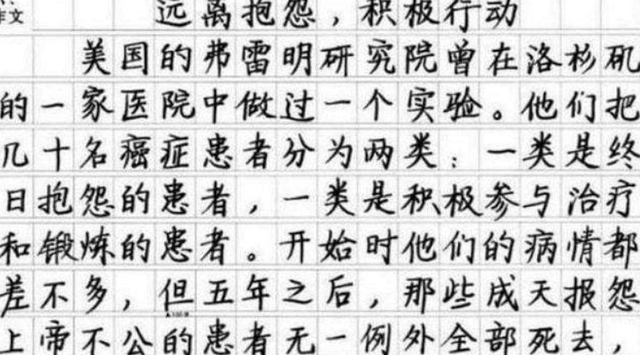 作文
远离抱怨，积极行动
美国的弗雷明研究院曾在洛杉矶
的一家医院中做过一个实验。他们把
几十名癌症患者分为两类：一类是终
日抱怨的患者，一类是积极参与治疗
和锻炼的患者。开始时他们的病情都
差不多，但五年之后，那些成天报怨
上帝不公的患者无一例外全部死去，